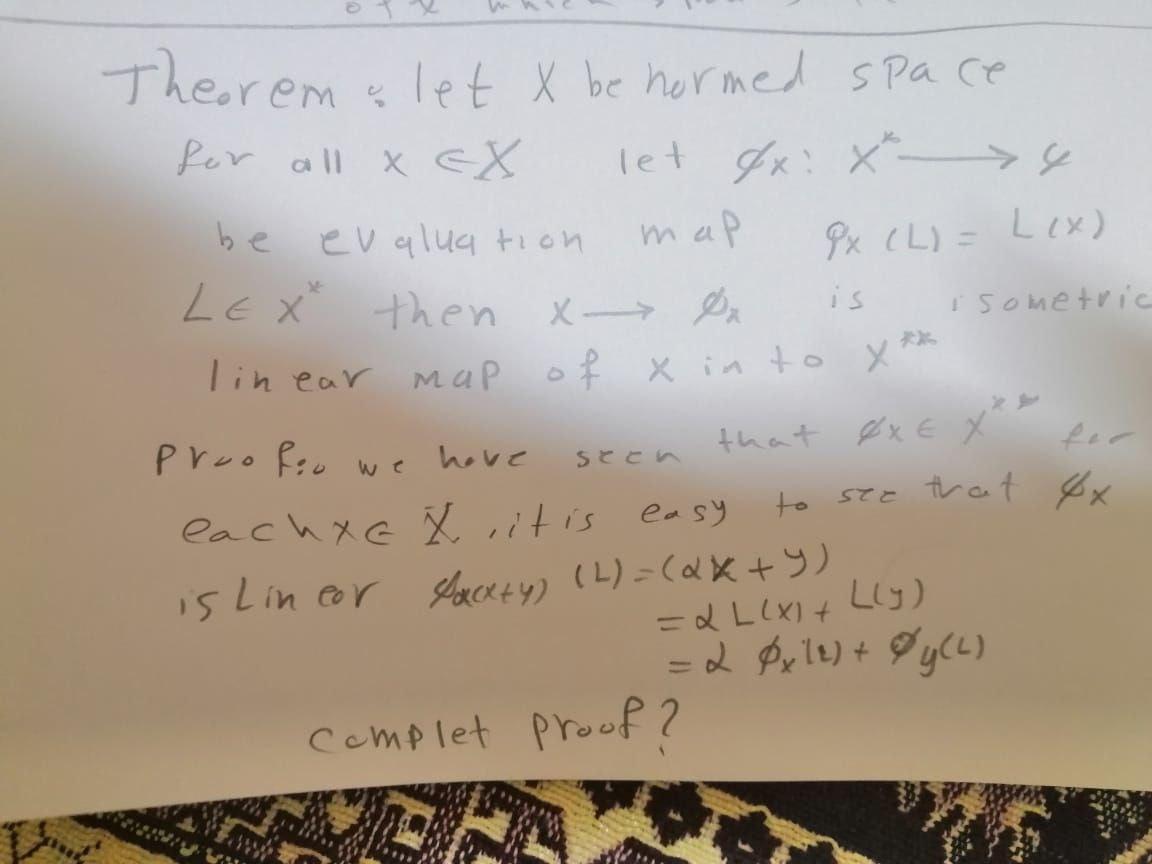 Theorem: let X be normed space
for all x ∈ X let φx: X* → ¢
be evaluation map φx (L) = L(x)
L ∈ X* then x → φx is isometric
linear map of x in to X**
proof:0 we have seen that φx ∈ X** for
each x ∈ X, it is easy to see that φx
is Linear φα(x+y) (L) = (αx + y)
= α L(x) + L(y)
= α φx(L) + φy(L)
complet proof?